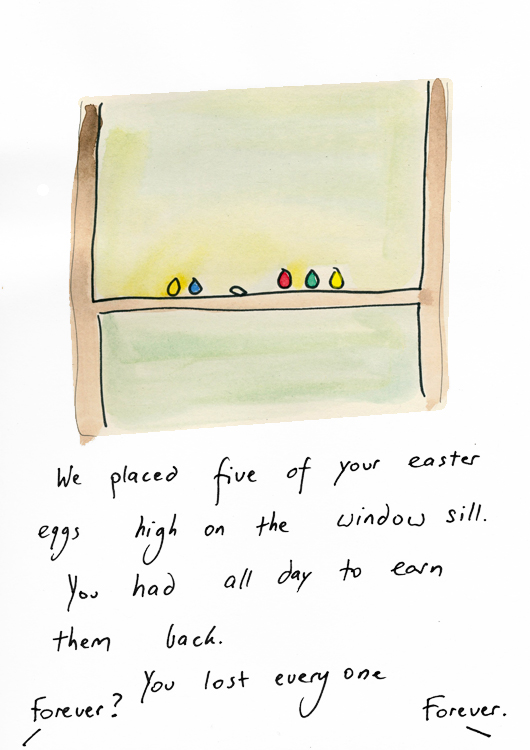 We placed five of your easter
eggs high on the window sill.
You had all day to earn
them back.
You lost every one
forever?
Forever.